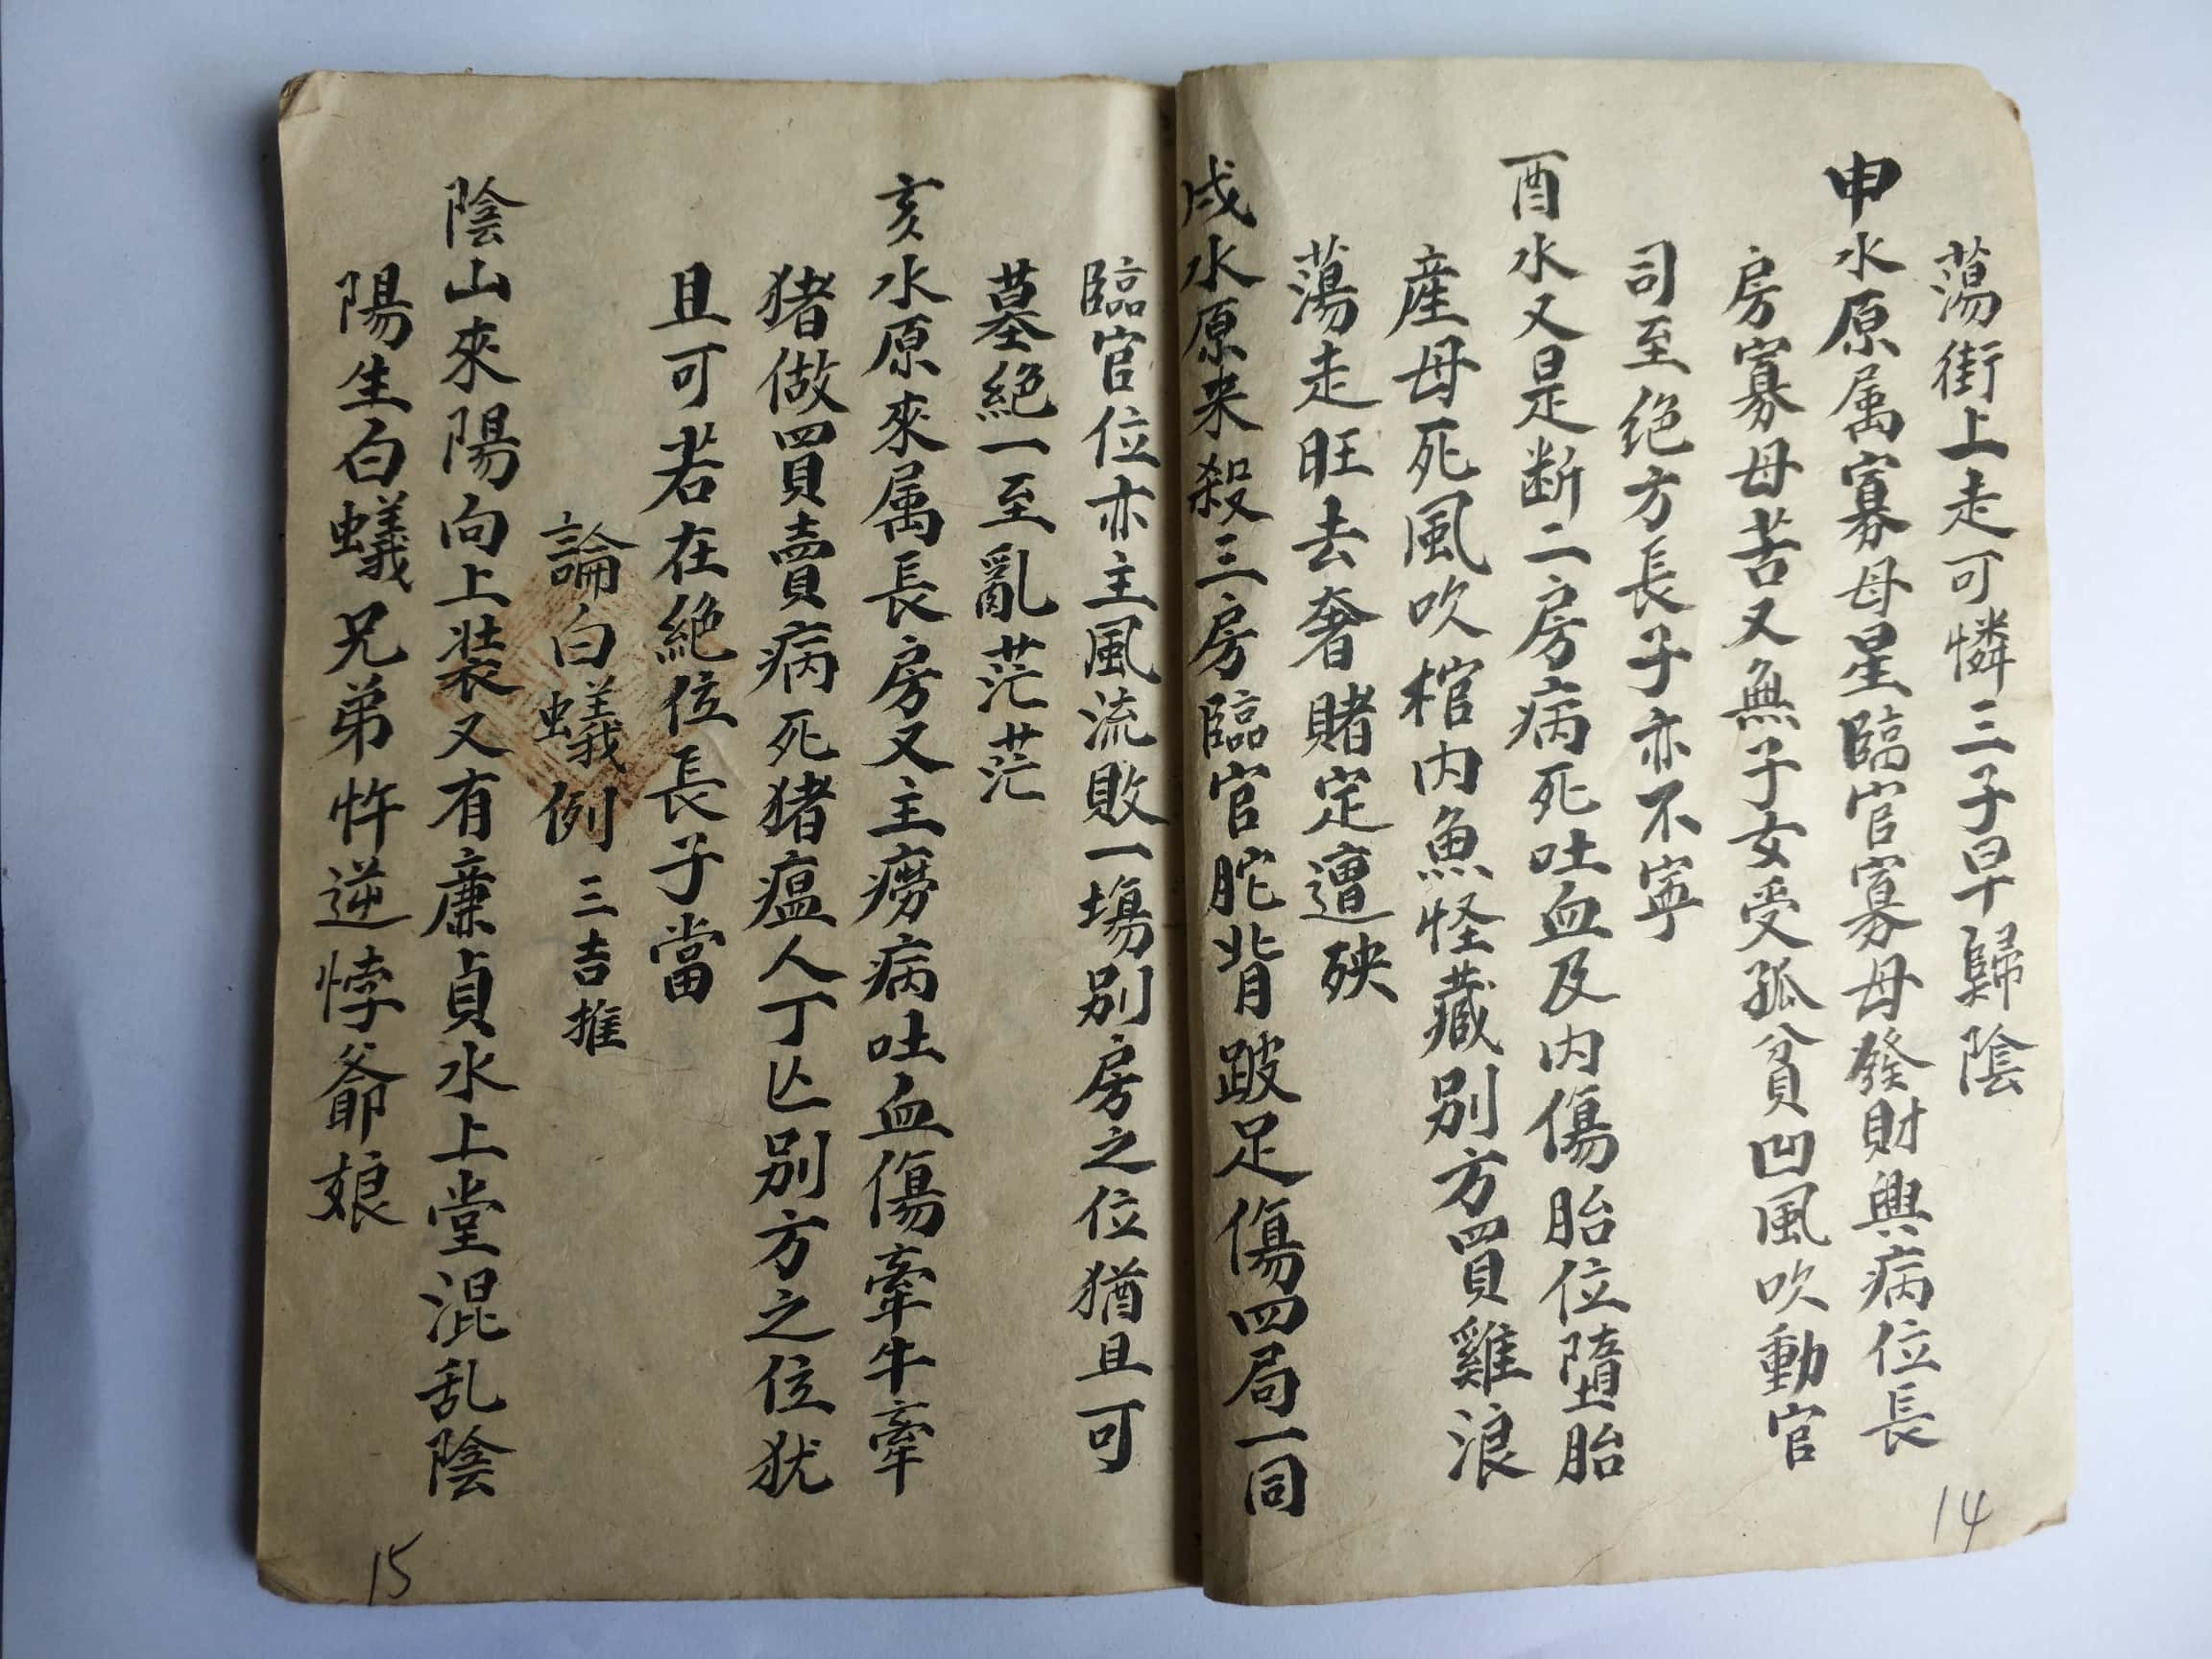 蕩街上走可憐三子早歸陰
申水原属寡母星臨官寡母發財興病位長
房寡母苦又無子女受孤貧凹風吹動官
司至绝方長子亦不寧
酉水又是断二房病死吐血及内傷胎位墮胎
産母死風吹棺内魚怪藏别方買雞浪
蕩走旺去奢賭定遭殃
戌水原来殺三房臨官駝背跛足傷四局一同
14
臨官位亦主風流敗一塲别房之位猶且可
墓絕一至亂茫茫
亥水原來属長房又主癆病吐血傷牽牛牽
猪做買賣病死猪瘟人丁亾别方之位犹
且可若在絕位長子當
論白蟻例 三吉推
陰山來陽向上装又有廉貞水上堂混乱陰
陽生白蟻兄弟忤逆悖爺娘
15